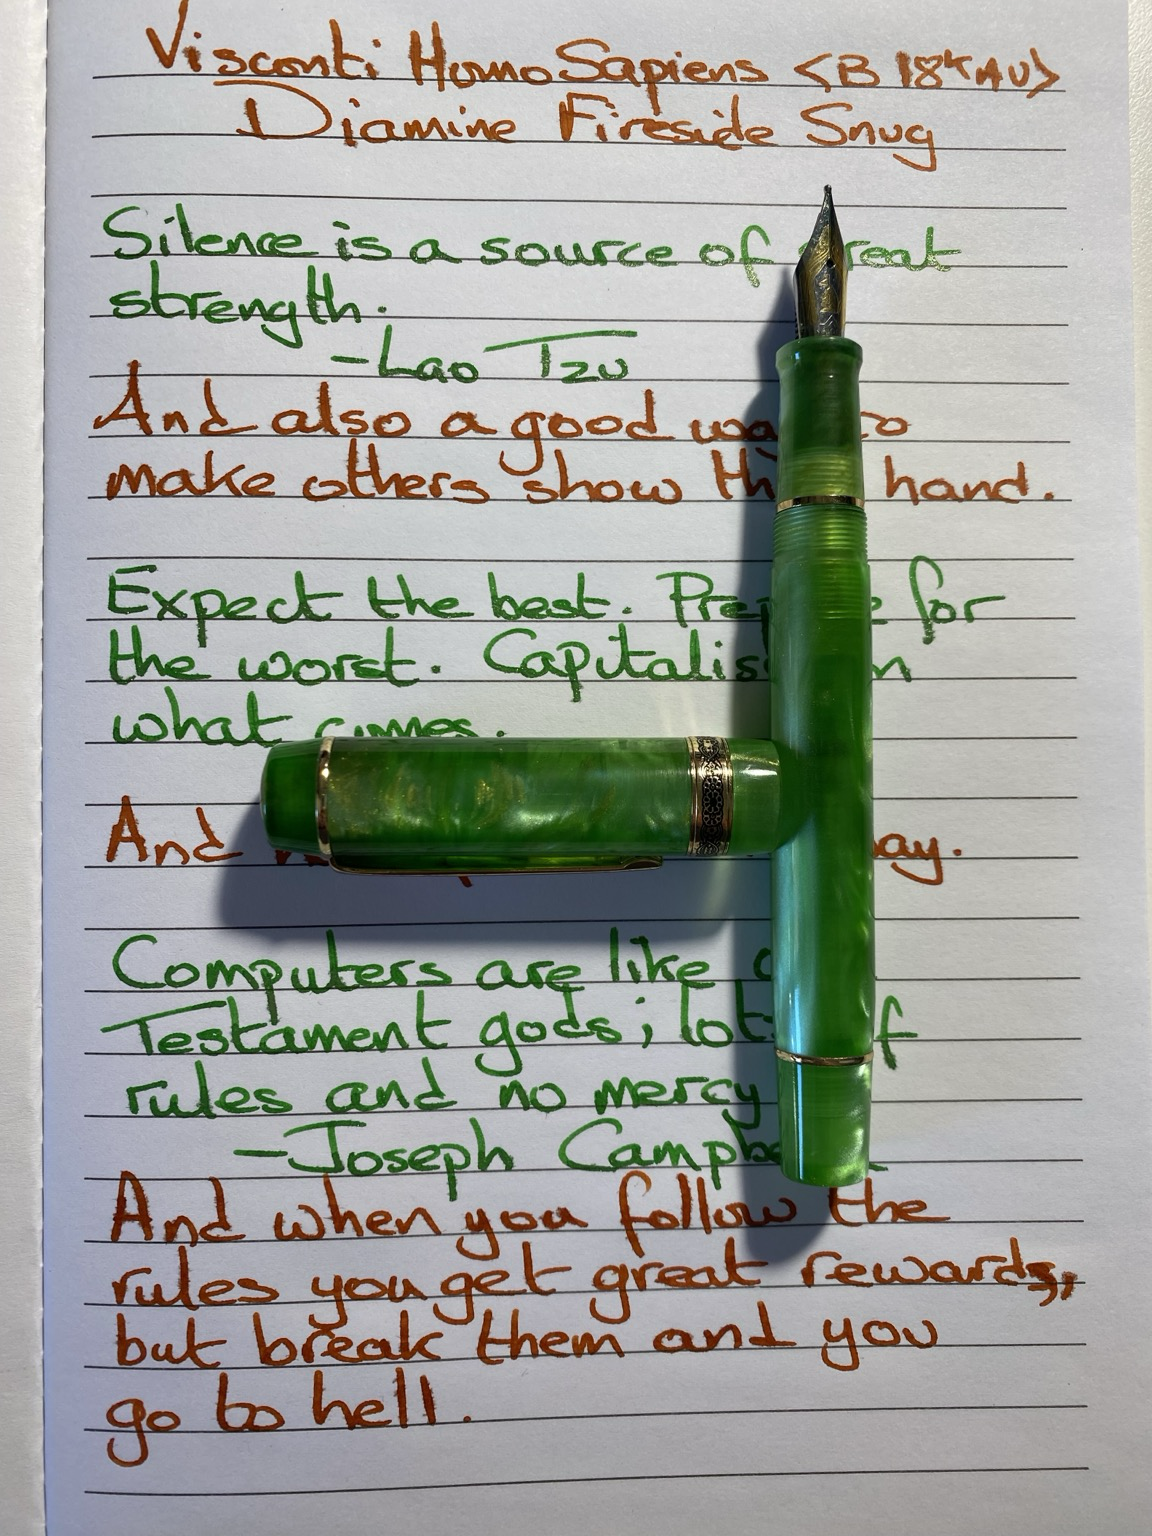 Visconti Homo Sapiens <B 18K AU>
Diamine Fireside Snug
Silence is a source of great
strength.
-Lao Tzu
And also a good way to
make others show hand.
Expect the best. Prepare for
the worst. Capitalise on
what comes.
And
Computers are like
Testament gods; lots of
rules and no mercy
-Joseph Campbell
And when you follow the
rules you get great rewards,
but break them and you
go to hell.